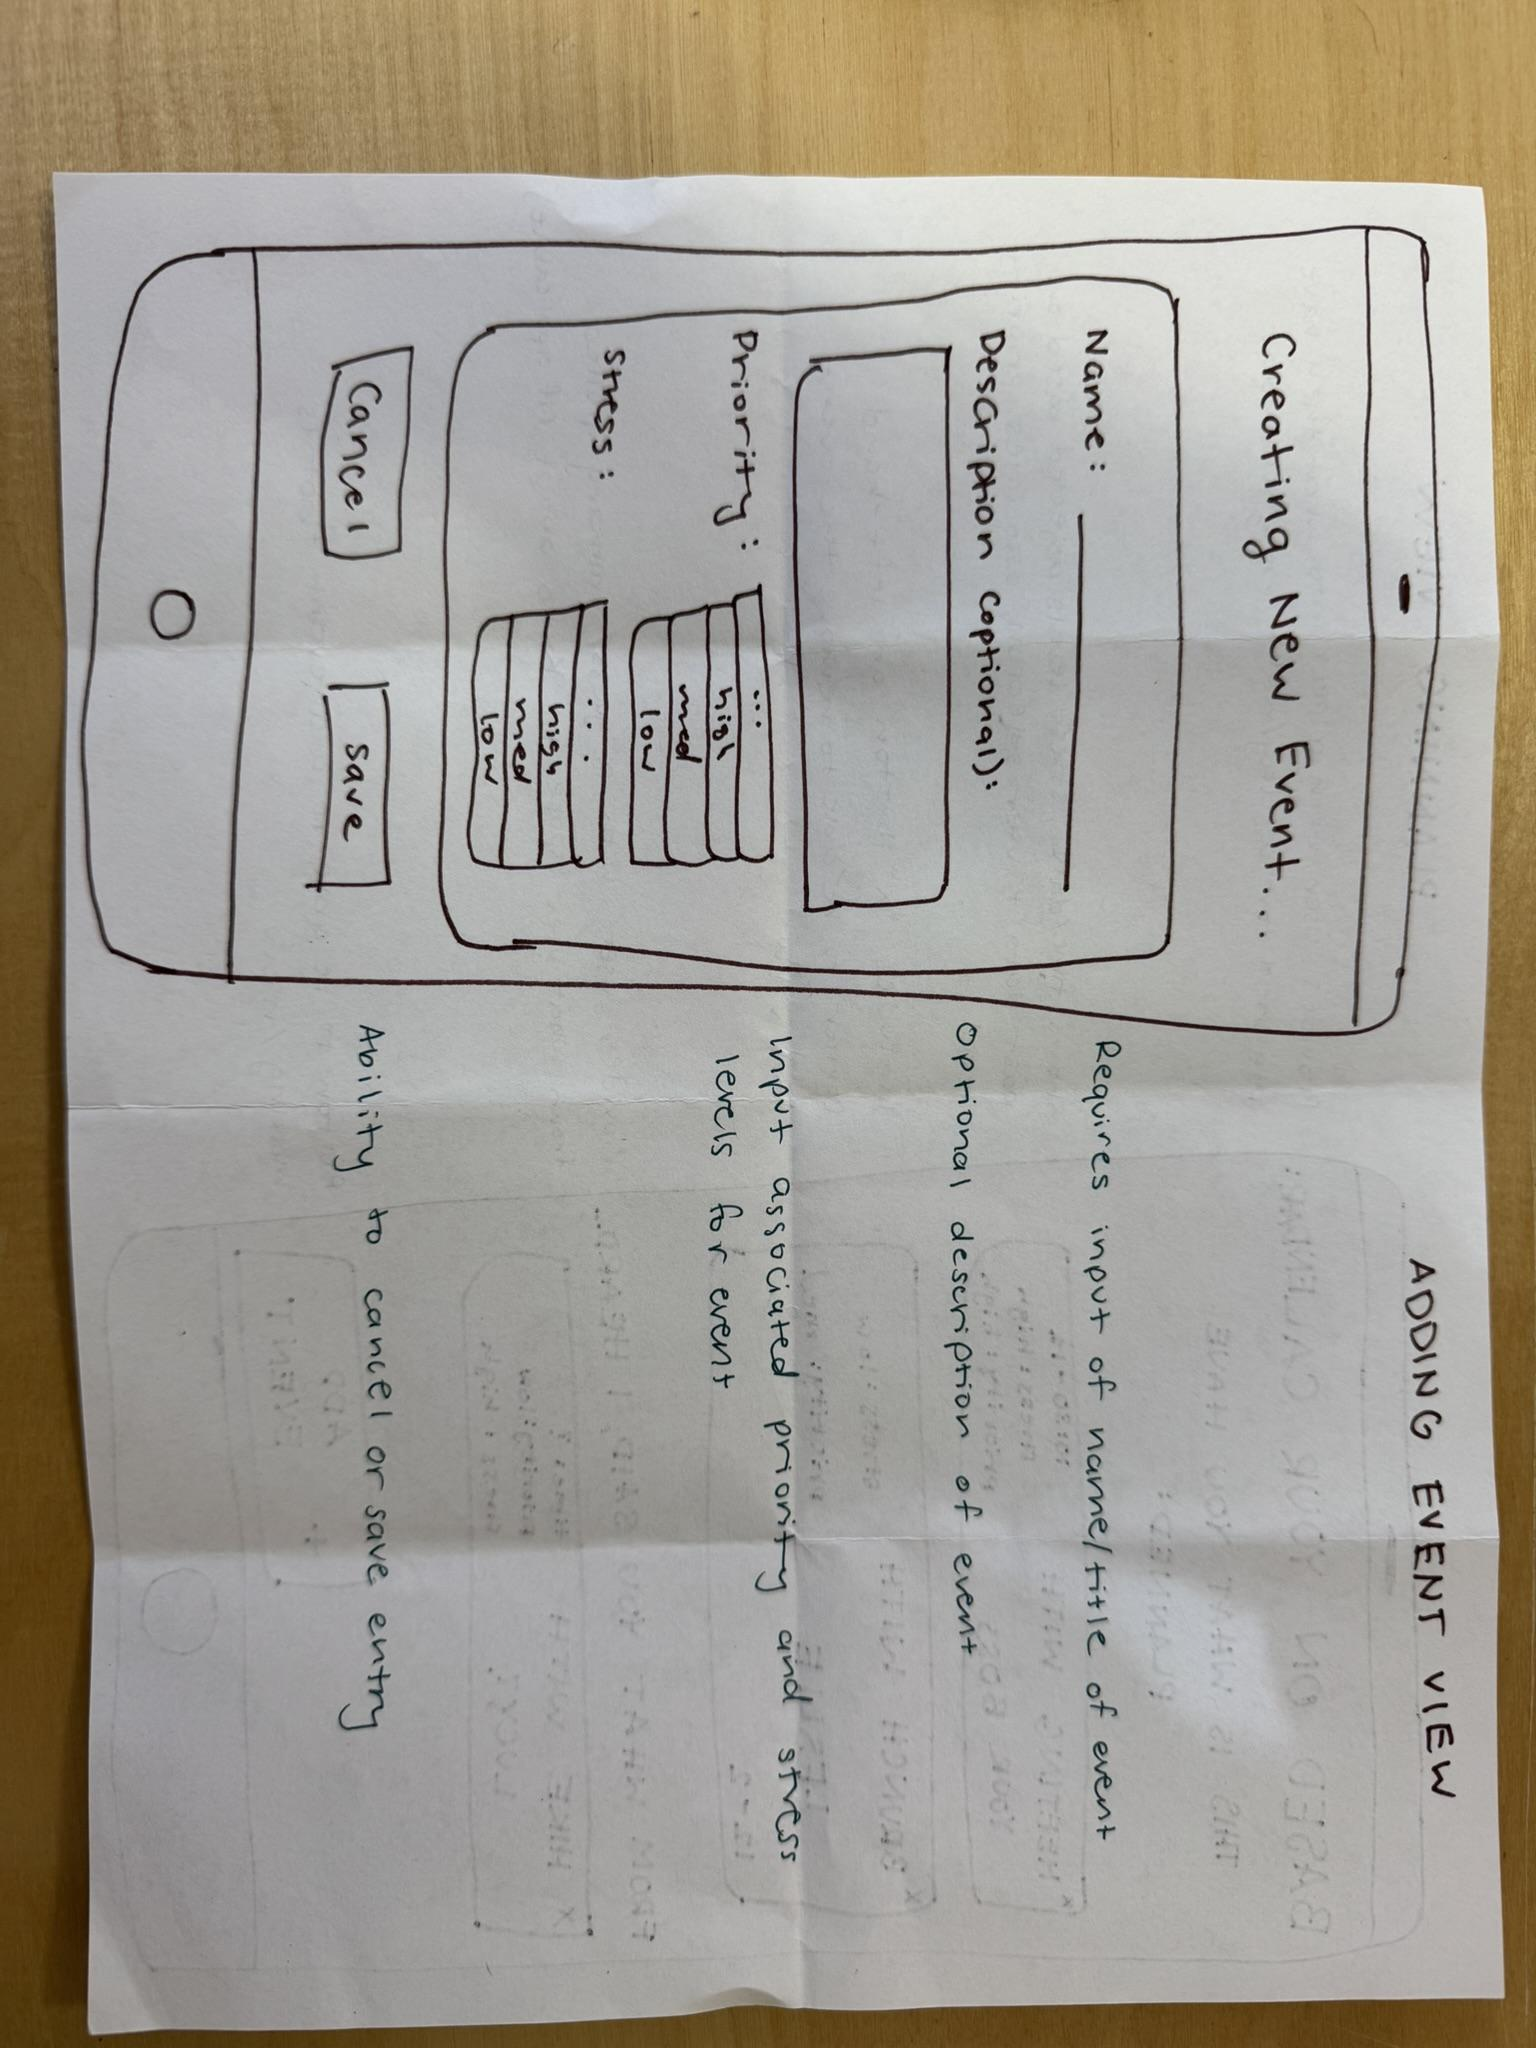 ADDING EVENT VIEW
Creating New Event...
Name:
Description (optional):
Priority:
...
high
med
low
Stress:
...
high
med
low
Cancel
Save
Requires input of name/title of event
Optional description of event
Input associated priority and stress
levels for event
Ability to cancel or save entry